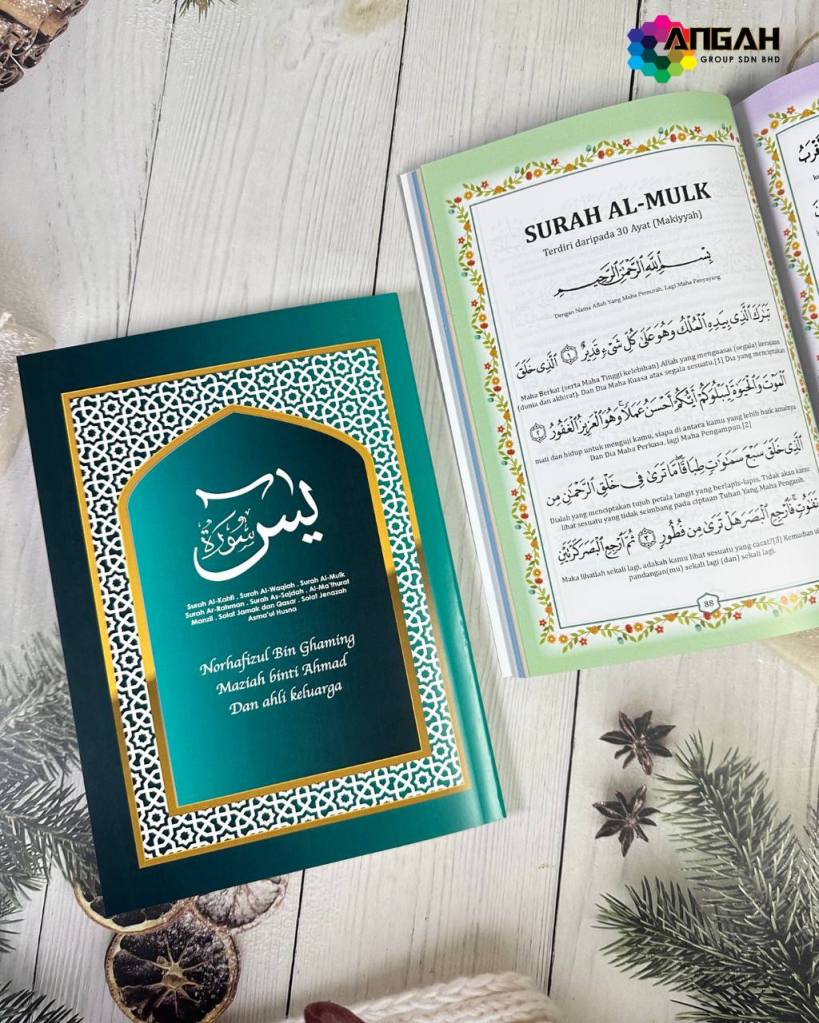 ANGAH
GROUP SDN BHD
سورة يس
Surah Al-Kahfi . Surah Al-Waqiah . Surah Al-Mulk
Surah Ar-Rahman . Surah As-Sajdah . Al-Ma'thurat
Manzil . Solat Jamak dan Qasar . Solat Jenazah
Asma'ul Husna
Norhafizul Bin Ghaming
Maziah binti Ahmad
Dan ahli keluarga
SURAH AL-MULK
Terdiri daripada 30 Ayat (Makiyyah)
بِسْمِ ٱللَّهِ ٱلرَّحْمَٰنِ ٱلرَّحِيمِ
Dengan Nama Allah Yang Maha Pemurah, Lagi Maha Penyayang
تَبَٰرَكَ ٱلَّذِى بِيَدِهِ ٱلْمُلْكُ وَهُوَ عَلَىٰ كُلِّ شَىْءٍ قَدِيرٌ ١ ٱلَّذِى خَلَقَ
Maha Berkat (serta Maha Tinggi kelebihan) Allah yang menguasai (segala) kerajaan
(dunia dan akhirat). Dan Dia Maha Kuasa atas segala sesuatu.[1] Dia yang menciptakan
ٱلْمَوْتَ وَٱلْحَيَوٰةَ لِيَبْلُوَكُمْ أَيُّكُمْ أَحْسَنُ عَمَلًا وَهُوَ ٱلْعَزِيزُ ٱلْغَفُورُ ٢
mati dan hidup untuk menguji kamu, siapa di antara kamu yang lebih baik amalnya
Dan Dia Maha Perkasa, lagi Maha Pengampun.[2]
ٱلَّذِى خَلَقَ سَبْعَ سَمَٰوَٰتٍ طِبَاقًا مَّا تَرَىٰ فِى خَلْقِ ٱلرَّحْمَٰنِ مِن
Dialah yang menciptakan tujuh petala langit yang berlapis-lapis. Tidak akan kamu
lihat sesuatu yang tidak seimbang pada ciptaan Tuhan Yang Maha Pengasih.
تَفَٰوُتٍ فَٱرْجِعِ ٱلْبَصَرَ هَلْ تَرَىٰ مِن فُطُورٍ ٣ ثُمَّ ٱرْجِعِ ٱلْبَصَرَ كَرَّتَيْنِ
Maka lihatlah sekali lagi, adakah kamu lihat sesuatu yang cacat?[3] Kemudian
pandangan(mu) sekali lagi (dan) sekali lagi.
88